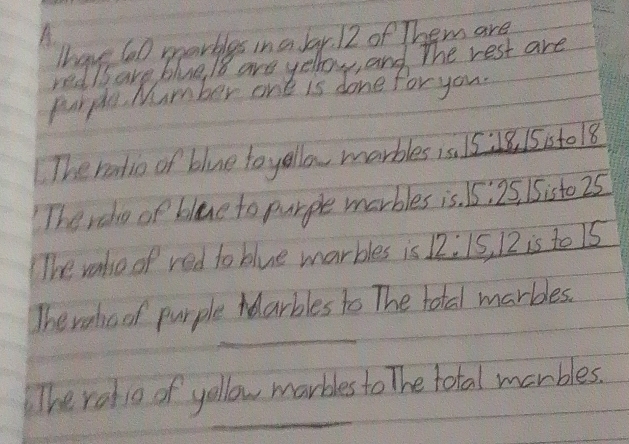 A.
I have 60 marbles in a Jar. 12 of Them are
red 15 are blue, 18 are yellow, and The rest are
purple. Number one is done for you.
The ratio of blue to yellow marbles is. 15:18, 15 is to 18
The ratio of blue to purple marbles is. 15:25, 15 is to 25
The ratio of red to blue marbles is 12:15, 12 is to 15
The ratio of purple Marbles to The total marbles.
The ratio of yellow marbles to The total marbles.